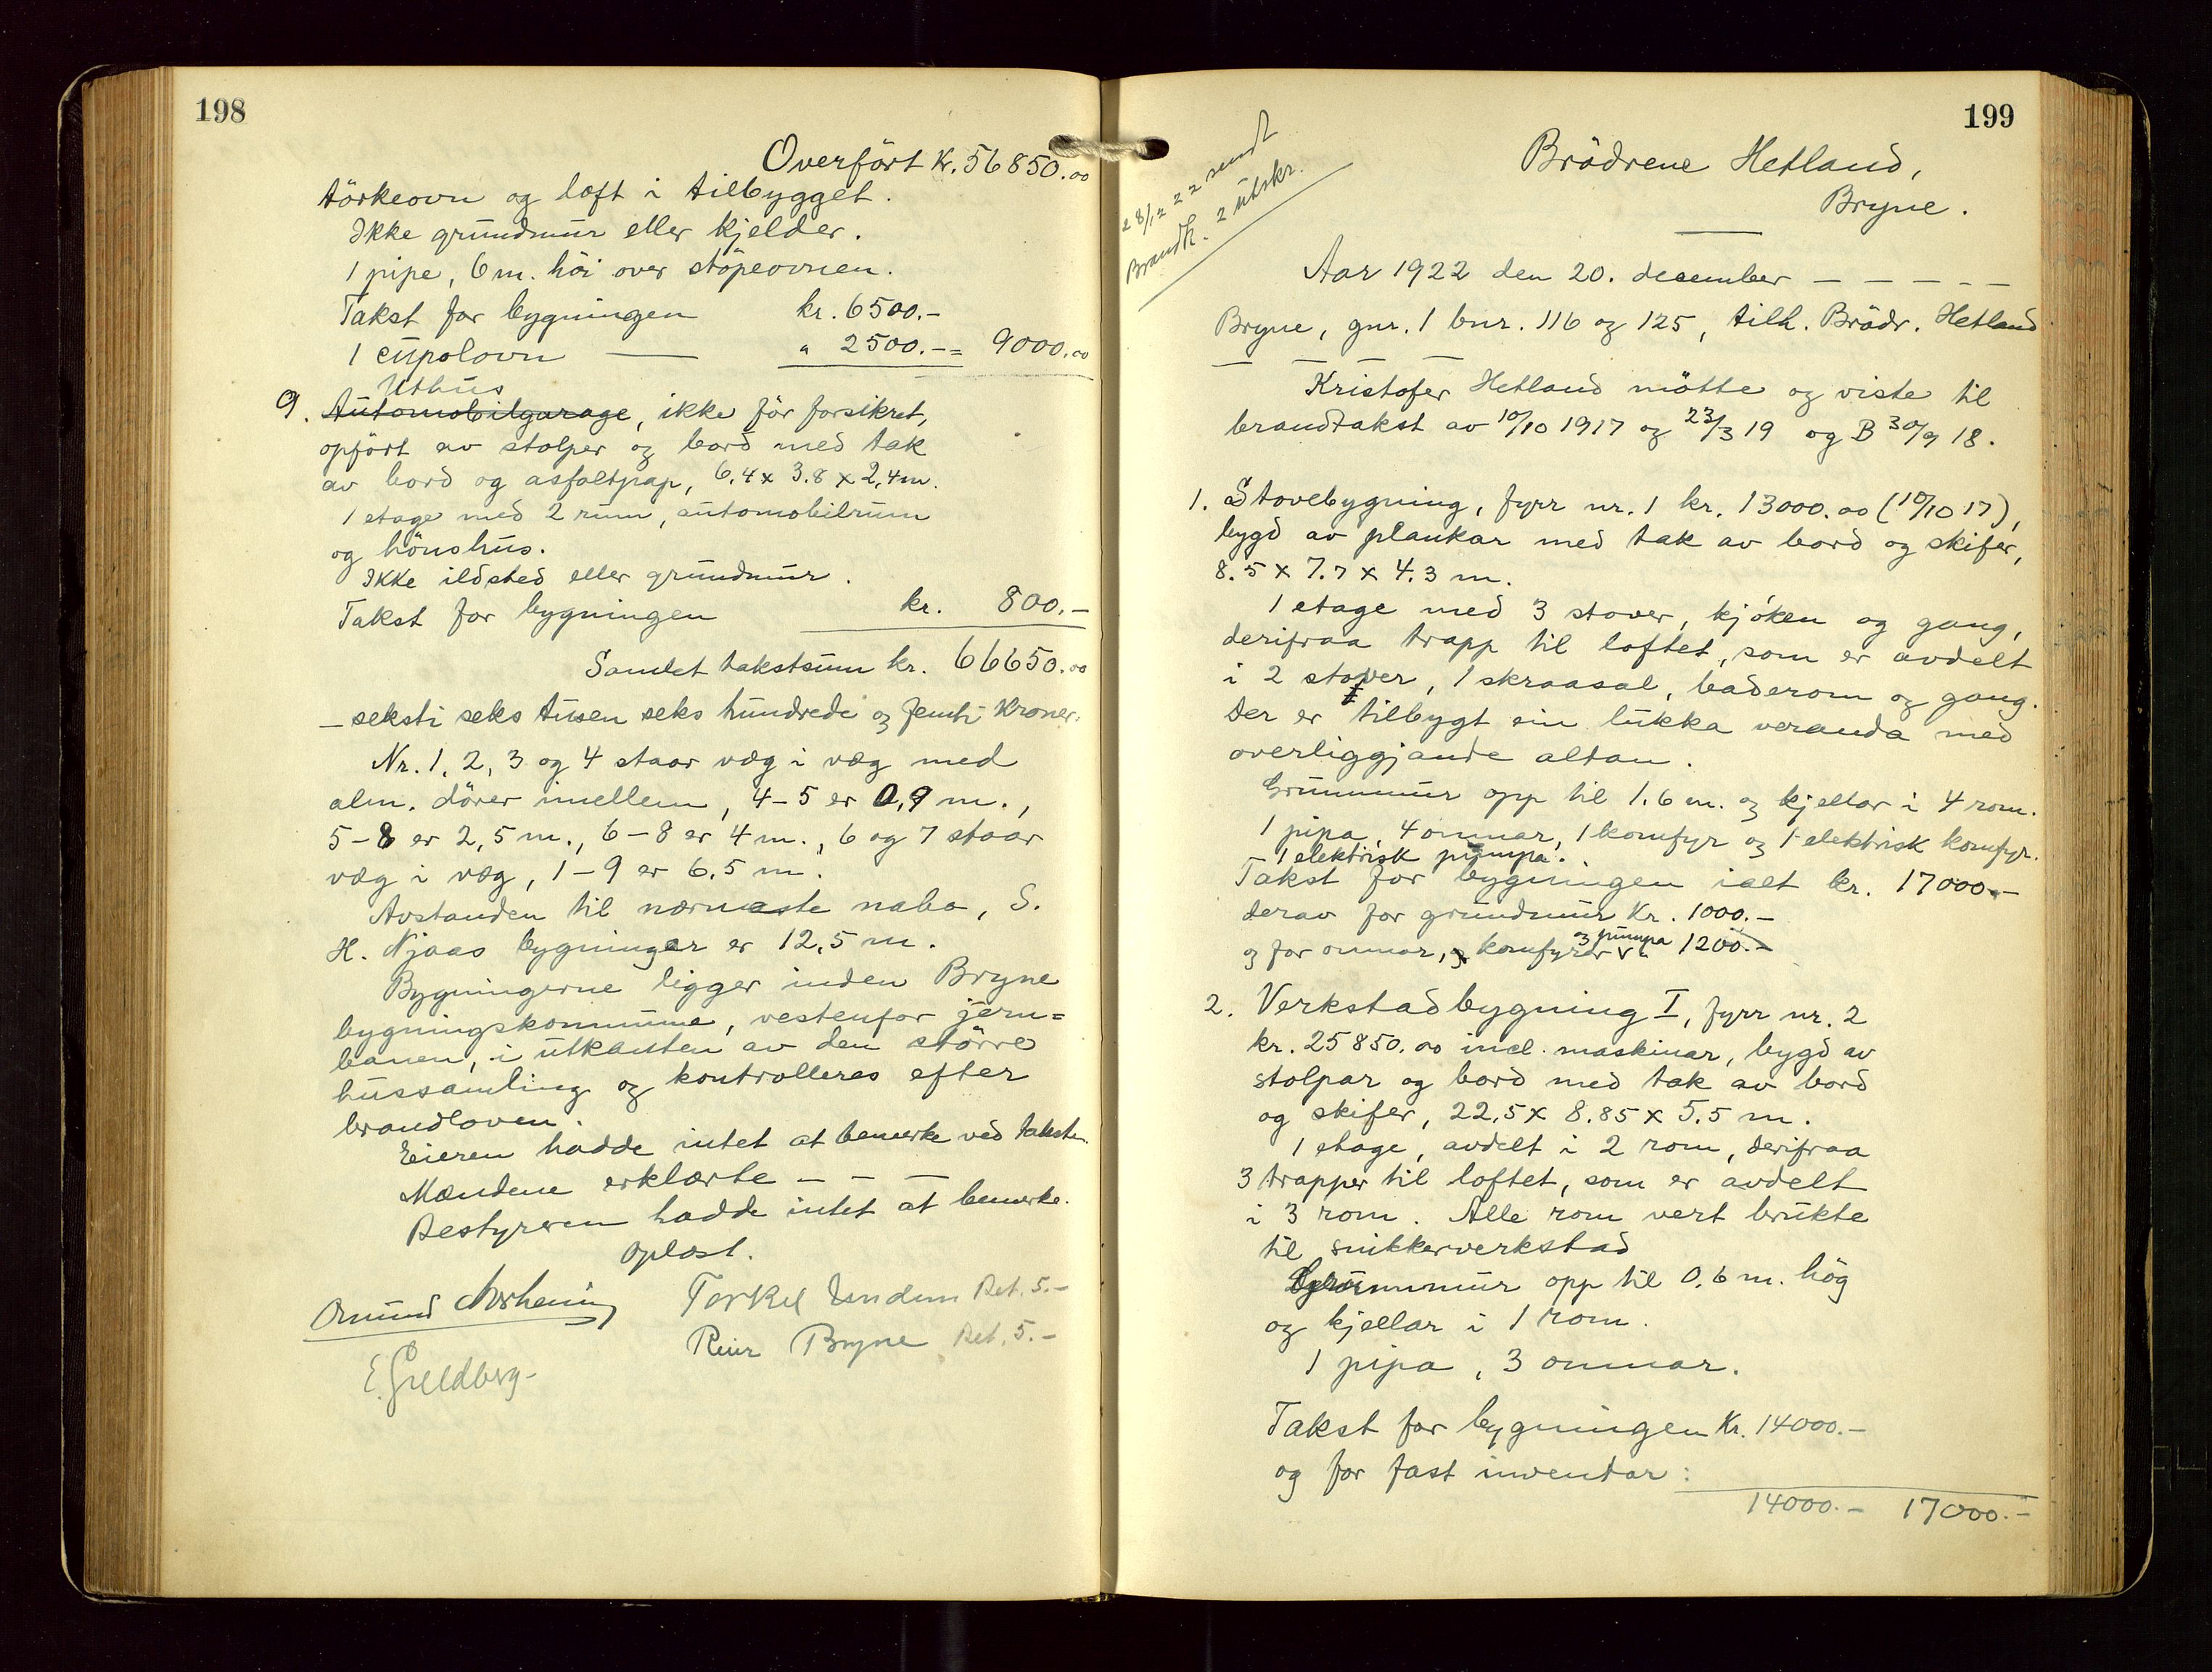 198
Overført Kr. 56850.00
tørkeovn og loft i tilbygget.
Ikke grundmur eller kjelder.
1 pipe, 6 m. høi over støpeovnen.
Takst for bygningen kr. 6500.-
1 cupolovn — " 2500.- = 9000.00
Uthus
9. Automobilgarage, ikke før forsikret,
opført av stolper og bord med tak
av bord og asfaltpap, 6.4 x 3.8 x 2,4 m.
1 etage med 2 rum, automobilrum
og hønshus.
Ikke ildsted eller grundmur.
Takst for bygningen kr. 800.-
Samlet takstsum kr. 66650.00
- seksti seks tusen seks hundrede og femti Kroner.
Nr. 1, 2, 3 og 4 staar væg i væg med
alm. dører imellem, 4-5 er 0,9 m.,
5-8 er 2,5 m., 6-8 er 4 m., 6 og 7 staar
væg i væg, 1-9 er 6,5 m.
Avstanden til nærmeste nabo, S.
H. Njaas bygninger er 12,5 m.
Bygningerne ligger inden Bryne
bygningskommune, vestenfor jern=
banen, i utkanten av den større
hussamling og kontrolleres efter
brandloven.
Eieren hadde intet at bemerke ved taksten.
Mændene erklærte - - -
Bestyreren hadde intet at bemerke.
Oplæst.
Omund Torkel Undem Bet. 5.-
Reier Bryne Bet. 5.-
199
28/12 22 sendt
Brandk. 2 utskr.
Brødrene Hetland,
Bryne.
Aar 1922 den 20. december - - - - -
Bryne, gnr. 1 bnr. 116 og 125, tilh. Brødr. Hetland
- - -
Kristofer Hetland møtte og viste til
brandtakst av 10/10 1917 og 23/3 19 og B 30/9 18.
1. Stovebygning, fyrr nr. 1 kr. 13000.00 (10/10 17),
bygd av plankar med tak av bord og skifer,
8.5 x 7.7 x 4.3 m.
1 etage med 3 stover, kjøken og gang,
derifraa trapp til loftet, som er avdelt
i 2 stover, 1 skraasal, baderom og gang.
Der er tilbygt ein lukka veranda med
overliggjande altan.
Grunnmur opp til 1.6 m. og kjellar i 4 rom.
1 pipa, 4 omnar, 1 komfyr og 1 elektrisk komfyr.
1 elektrisk pumpa.
Takst for bygningen ialt kr. 17000.-
derav for grundmur Kr. 1000.-
og for omnar, komfyrer og pumpa kr. 1200.-
2. Verkstadbygning I, fyrr nr. 2
kr. 25850.00 incl. maskinar, bygd av
stolpar og bord med tak av bord
og skifer, 22,5 x 8.85 x 5.5 m.
1 etage, avdelt i 2 rom, derifraa
3 trapper til loftet, som er avdelt
i 3 rom. Alle rom vert brukte
til snikkerverkstad
Grunnmur opp til 0.6 m. høg
og kjellar i 1 rom.
1 pipa, 3 omnar.
Takst for bygningen Kr. 14000.-
og for fast inventar:
14000.- 17000.-